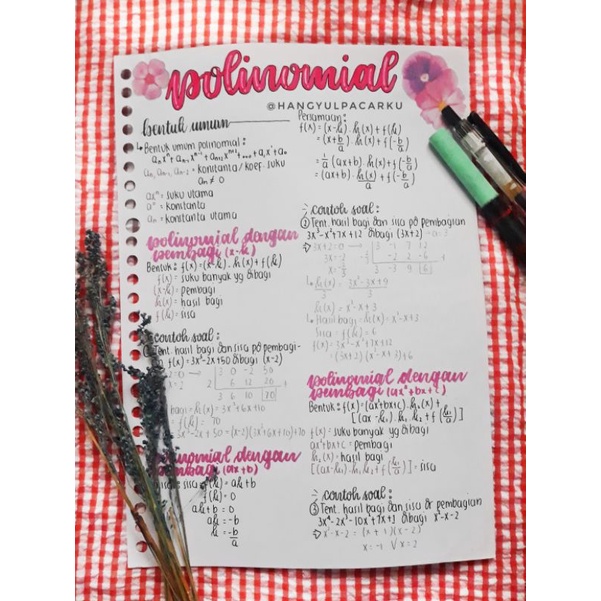 polinomial
@HANGYULPACARKU
bentuk umum
↳ Bentuk umum polinomial :
aₙxⁿ + aₙ₋₁xⁿ⁻¹ + aₙ₋₂xⁿ⁻² + ... + a₁x¹ + a₀
= konstanta / koef. suku
aₙ ≠ 0
axⁿ = suku utama
= konstanta
= konstanta utama
polinomial dengan
pembagi (x-k)
Bentuk : f(x) = (x-k) . h(x) + f(k)
f(x) = suku banyak yg dibagi
(x-k) = pembagi
h(x) = hasil bagi
f(k) = sisa
contoh soal :
Tent. hasil bagi dan sisa pd pembagi-
f(x) = 3x³-2x+50 dibagi (x-2)
x=2
2 | 3 0 -2 50
6 12 20 +
3 6 10 70
bagi = h(x) = 3x²+6x+10
= f(k) = 70
3x³-2x+50 = (x-2)(3x²+6x+10)+70
polinomial dengan
pembagi (ax+b)
sisa f(k) = ak+b
f(k) = 0
ak+b = 0
ak = -b
k = -b/a
Persamaan :
f(x) = (x-k) . h(x) + f(k)
= (x+b/a) . h(x) + f(-b/a)
= 1/a (ax+b) . h(x) + f(-b/a)
= (ax+b) . h(x)/a + f(-b/a)
contoh soal :
② Tent. hasil bagi dan sisa pd pembagian
3x³-x²+7x+12 dibagi (3x+2)
3x+2=0
3x=-2
3 -1 7 12
-2 2 -6 +
3 -3 9 6
h(x)/3 = 3x²-3x+9/3
h(x) = x²-x+3
Hasil bagi = h(x) = x²-x+3
Sisa = f(k) = 6
f(x) = 3x³-x²+7x+12
= (3x+2) (x²-x+3)+6
polinomial dengan
Bentuk : f(x) = (ax²+bx+c) . h(x) +
f(x) = suku banyak yg dibagi
ax²+bx+c = pembagi
h(x) = hasil bagi
= sisa
contoh soal :
③ Tent. hasil bagi dan sisa dr pembagian
3x⁴-2x³-10x²+7x+3 dibagi x²-x-2
x²-x-2 = (x+1)(x-2)
x=-1 V x=2